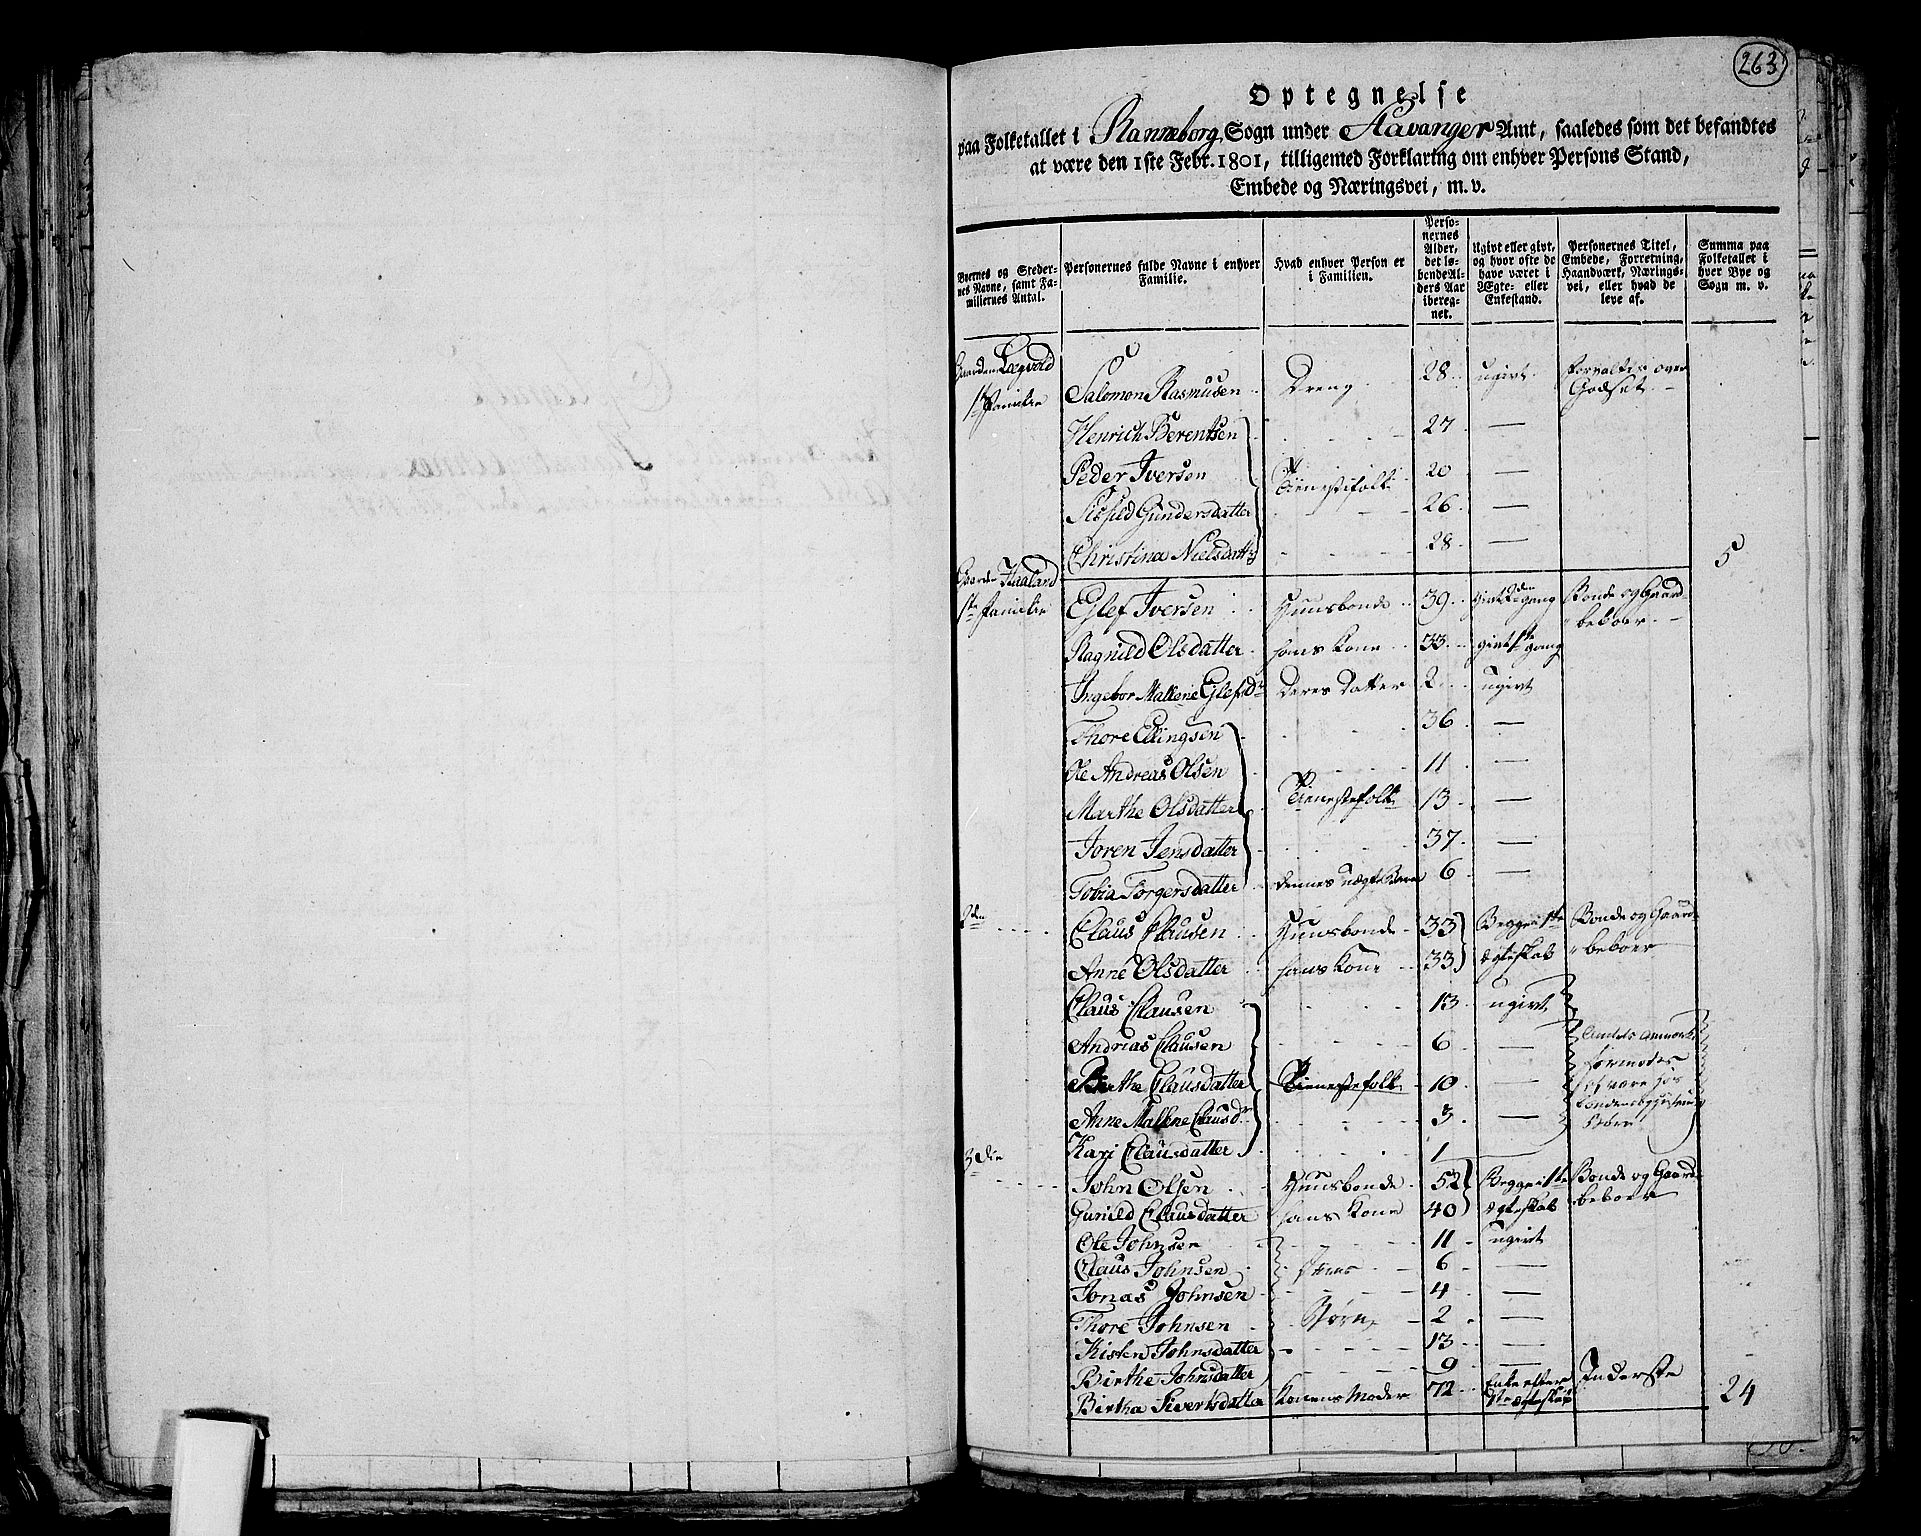 263
Optegnelse
paa Folketallet i Ranneborg Sogn under Stavanger Amt, saaledes som det befandtes
at være den 1ste Febr. 1801, tilligemed Forklaring om enhver Persons Stand,
Embede og Næringsvei, m. v.
Byernes og Steder-
nes Navne, samt Fa-
miliernes Antal.
Personernes fulde Navne i enhver
Familie.
Hvad enhver Person er
i Familien.
Perso-
nernes
Alder,
det lø-
bende Al-
ders Aar
ibereg-
net.
Ugivt eller givt,
og hvor ofte de
have været i
Ægte- eller
Enkestand.
Personernes Titel,
Embede, Forretning,
Haandværk, Nærings-
vei, eller hvad de
leve af.
Summa paa
Folketallet i
hver Bye og
Sogn m. v.
Gaarden Lægvold
1te Familie Salomon Rasmusen Dreng 28 ugivt forvalter over
Godset
Henrich Berentsen 27 —
Peder Iversen Tienestefolk 20 —
Sishild Gundersdatter 26 —
Christina Nielsdattr 28 — 5
Gaarden Haaland
1te Familie Eglef Iversen Huusbonde 39 givt 2den gang Bonde og Gaard-
beboer
Ragnild Olsdatter hans Kone 33 givt 1te gang
Ingebor Mallene Glefsdr deres datter 2 ugivt
Thore Ellingsen 36 —
Ole Andreas Olsen 11 —
Marthe Olsdatter Tienestefolk 13 —
Joren Jensdatter 37 —
Tobia Torgersdatter dennes uægte Barn 6 —
2den Claus Clausen Huusbonde 33 Begge i 1te Bonde og Gaard-
Anne Olsdatter hans Kone 33 ægteskab beboer
Claus Clausen 13 ugivt
Andrias Clausen 6 —
Birthe Clausdatter Tienestefolk 10 —
Anne Mallene Clausdr 3 —
Kari Clausdatter 1
formodes
at være
Børn
3die John Olsen Huusbonde 52 Begge i 1te Bonde og Gaard-
Gunild Clausdatter hans Kone 40 ægteskab beboer
Ole Johnsen 11 ugivt
Claus Johnsen deres 6 —
Jonas Johnsen 4 —
Thore Johnsen Børn 2 —
Kisten Johnsdatter 13 —
Birthe Johnsdatter 9 —
Birtha Sivertsdatter Konens Moder 72 Enke efter Inderste
1te ægteskab 24